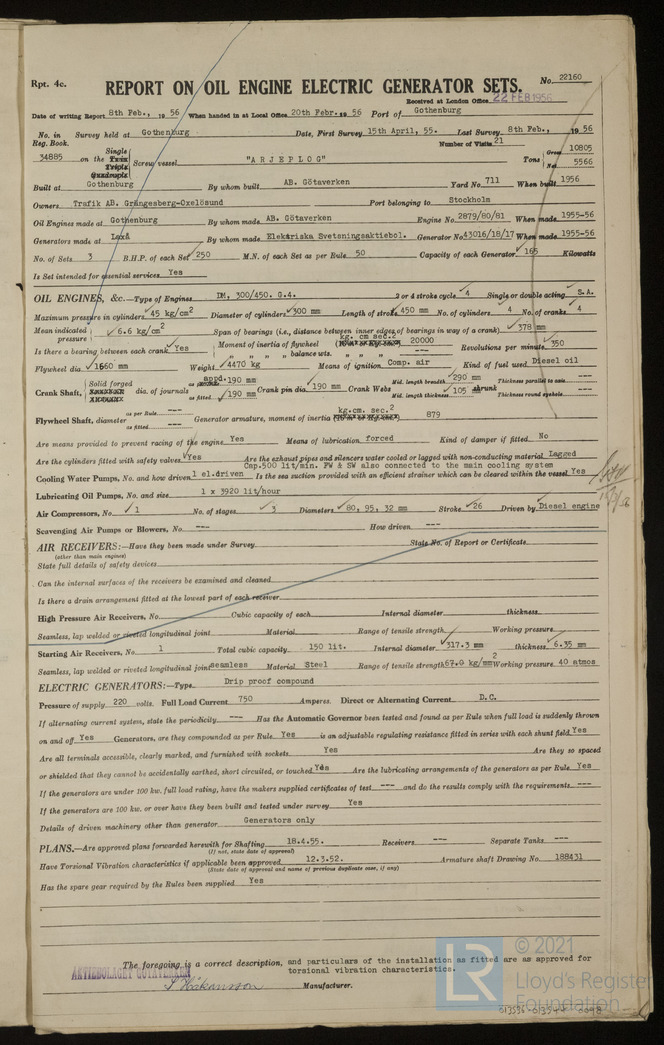 Rpt. 4c. REPORT ON OIL ENGINE ELECTRIC GENERATOR SETS. No. 22160
Received at London Office 22 FEB 1956
Date of writing Report 8th Feb., 19 56 When handed in at Local Office 20th Febr. 19 56 Port of Gothenburg
No. in Reg. Book. Survey held at Gothenburg Date, First Survey 15th April, 55. Last Survey 8th Feb., 19 56
Number of Visits 21
34885 on the Single Twin Triple Quadruple Screw vessel "ARJEPLOG" Tons Gross 10805 Net 5566
Built at Gothenburg By whom built AB. Götaverken Yard No. 711 When built 1956
Owners Trafik AB. Grängesberg-Oxelösund Port belonging to Stockholm
Oil Engines made at Gothenburg By whom made AB. Götaverken Engine No. 2879/80/81 When made 1955-56
Generators made at Laxå By whom made Elekäriska Svetsningsaktiebol. Generator No. 43016/18/17 When made 1955-56
No. of Sets 3 B.H.P. of each Set 250 M.N. of each Set as per Rule 50 Capacity of each Generator 165 Kilowatts
Is Set intended for essential services Yes
OIL ENGINES, &c.—Type of Engines DM, 300/450. G.4. 2 or 4 stroke cycle 4 Single or double acting S.A.
Maximum pressure in cylinders 45 kg/cm2 Diameter of cylinders 300 mm Length of stroke 450 mm No. of cylinders 4 No. of cranks 4
Mean indicated pressure 6.6 kg/cm2 Span of bearings (i.e., distance between inner edges of bearings in way of a crank) 378 mm
Is there a bearing between each crank Yes Moment of inertia of flywheel kg. cm sec.2 20000 Revolutions per minute 350
" " " " balance wts. " " " ---
Flywheel dia. 1660 mm Weight 4470 kg Means of ignition Comp. air Kind of fuel used Diesel oil
Crank Shaft, Solid forged dia. of journals appd. 190 mm as fitted 190 mm Crank pin dia. 190 mm Crank Webs Mid. length breadth 290 mm Thickness parallel to axis ---
Mid. length thickness 105 mm shrunk Thickness round eyehole ---
Flywheel Shaft, diameter as per Rule --- as fitted --- Generator armature, moment of inertia kg.cm. sec.2 879
Are means provided to prevent racing of the engine Yes Means of lubrication forced Kind of damper if fitted No
Are the cylinders fitted with safety valves Yes Are the exhaust pipes and silencers water cooled or lagged with non-conducting material Lagged
Cap.500 lit/min. FW & SW also connected to the main cooling system
Cooling Water Pumps, No. and how driven 1 el.driven Is the sea suction provided with an efficient strainer which can be cleared within the vessel Yes
Lubricating Oil Pumps, No. and size 1 x 3920 lit/hour
Air Compressors, No. 1 No. of stages 3 Diameters 80, 95, 32 mm Stroke 26 Driven by Diesel engine
Scavenging Air Pumps or Blowers, No. --- How driven ---
AIR RECEIVERS:—Have they been made under Survey State No. of Report or Certificate
(other than main engines)
State full details of safety devices
Can the internal surfaces of the receivers be examined and cleaned
Is there a drain arrangement fitted at the lowest part of each receiver
High Pressure Air Receivers, No. Cubic capacity of each Internal diameter thickness
Seamless, lap welded or riveted longitudinal joint Material Range of tensile strength Working pressure
Starting Air Receivers, No. 1 Total cubic capacity 150 lit. Internal diameter 317.3 mm thickness 6.35 mm
Seamless, lap welded or riveted longitudinal joint seamless Material Steel Range of tensile strength 67.0 kg/mm2 Working pressure 40 atmos
ELECTRIC GENERATORS:—Type Drip proof compound
Pressure of supply 220 volts. Full Load Current 750 Amperes. Direct or Alternating Current D.C.
If alternating current system, state the periodicity --- Has the Automatic Governor been tested and found as per Rule when full load is suddenly thrown
on and off Yes Generators, are they compounded as per Rule Yes is an adjustable regulating resistance fitted in series with each shunt field Yes
Are all terminals accessible, clearly marked, and furnished with sockets Yes Are they so spaced
or shielded that they cannot be accidentally earthed, short circuited, or touched Yes Are the lubricating arrangements of the generators as per Rule Yes
If the generators are under 100 kw. full load rating, have the makers supplied certificates of test --- and do the results comply with the requirements ---
If the generators are 100 kw. or over have they been built and tested under survey Yes
Details of driven machinery other than generator Generators only
PLANS.—Are approved plans forwarded herewith for Shafting 18.4.55. Receivers --- Separate Tanks ---
(If not, state date of approval)
Have Torsional Vibration characteristics if applicable been approved 12.3.52. Armature shaft Drawing No. 188431
(State date of approval and name of previous duplicate case, if any)
Has the spare gear required by the Rules been supplied Yes
The foregoing is a correct description, and particulars of the installation as fitted are as approved for
torsional vibration characteristics.
AKTIEBOLAGET GÖTAVERKEN
Manufacturer.
LR © 2021
Lloyd's Register
Foundation
013536-013544-0098